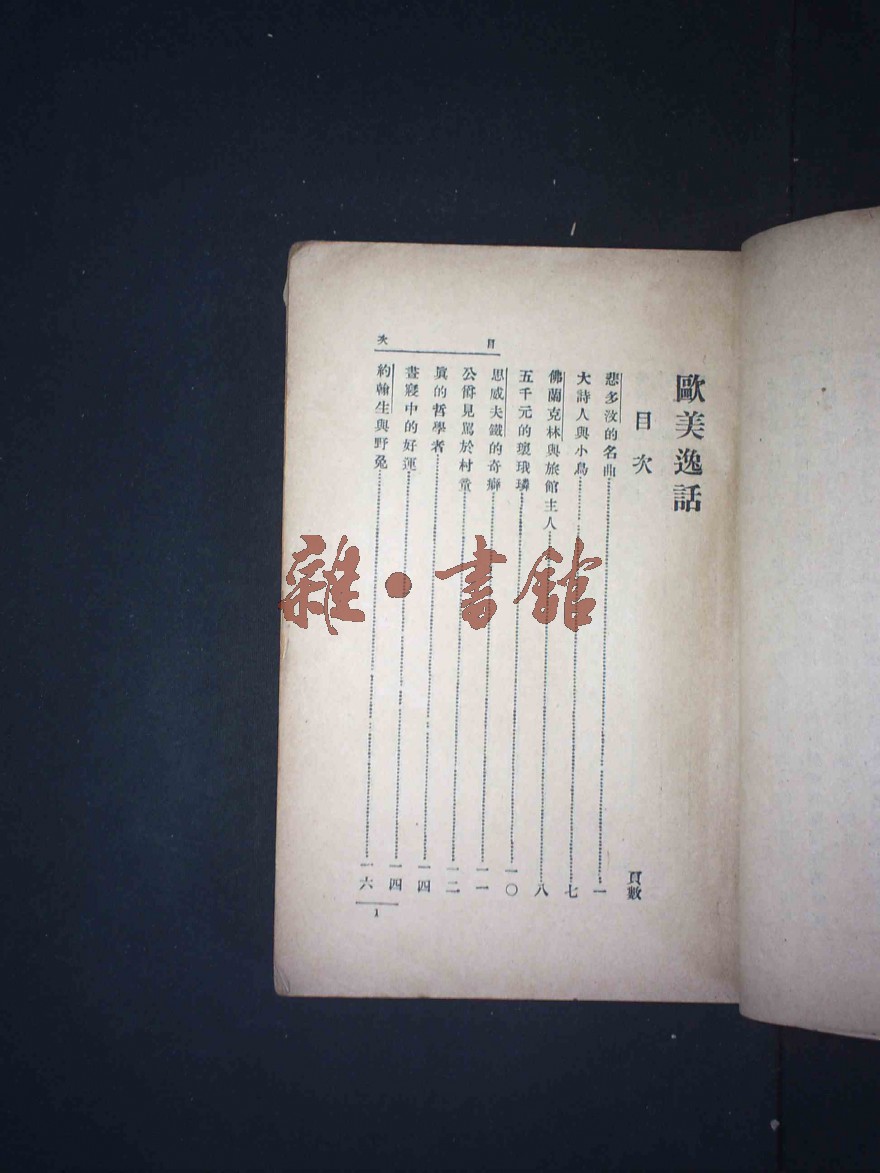 歐美逸話
目次
頁數
悲多汝的名曲……一
大詩人與小鳥……七
佛蘭克林與旅館主人……八
五千元的瓌珴璘……一〇
思威夫鐵的奇癖……一一
公爵見罵於村童……一二
眞的哲學者……一四
晝寢中的好運……一四
約翰生與野兔……一六
目次
1
雜·書館